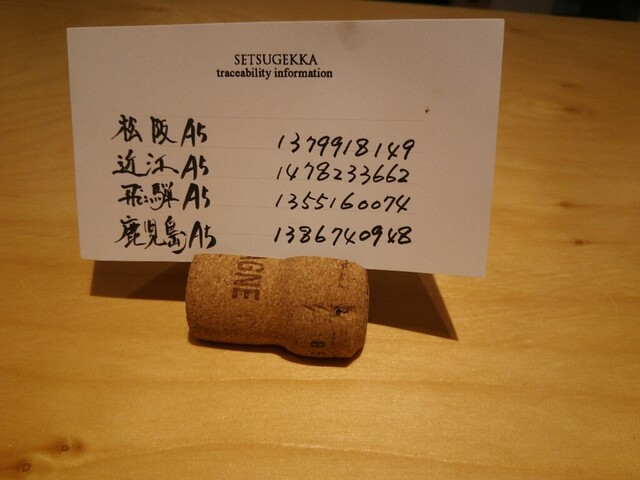 SETSUGEKKA
traceability information
松阪A5 1379918149
近江A5 1478233662
飛騨A5 1355160074
鹿児島A5 1386740948
AGNE